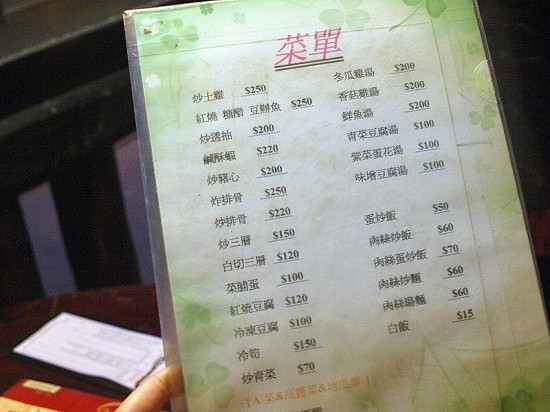 菜單
炒土雞 $250
紅燒 糖醋 豆瓣魚 $250
炒透抽 $200
鹹酥蝦 $220
炒豬心 $200
炸排骨 $250
炒排骨 $220
炒三層 $150
白切三層 $120
菜脯蛋 $100
紅燒豆腐 $120
冷凍豆腐 $100
冷筍 $150
炒青菜 $70
冬瓜雞湯 $200
香菇雞湯 $200
鮮魚湯 $200
青菜豆腐湯 $100
紫菜蛋花湯 $100
味增豆腐湯 $100
蛋炒飯 $50
肉絲炒飯 $60
肉絲蛋炒飯 $70
肉絲炒麵 $60
肉絲湯麵 $60
白飯 $15